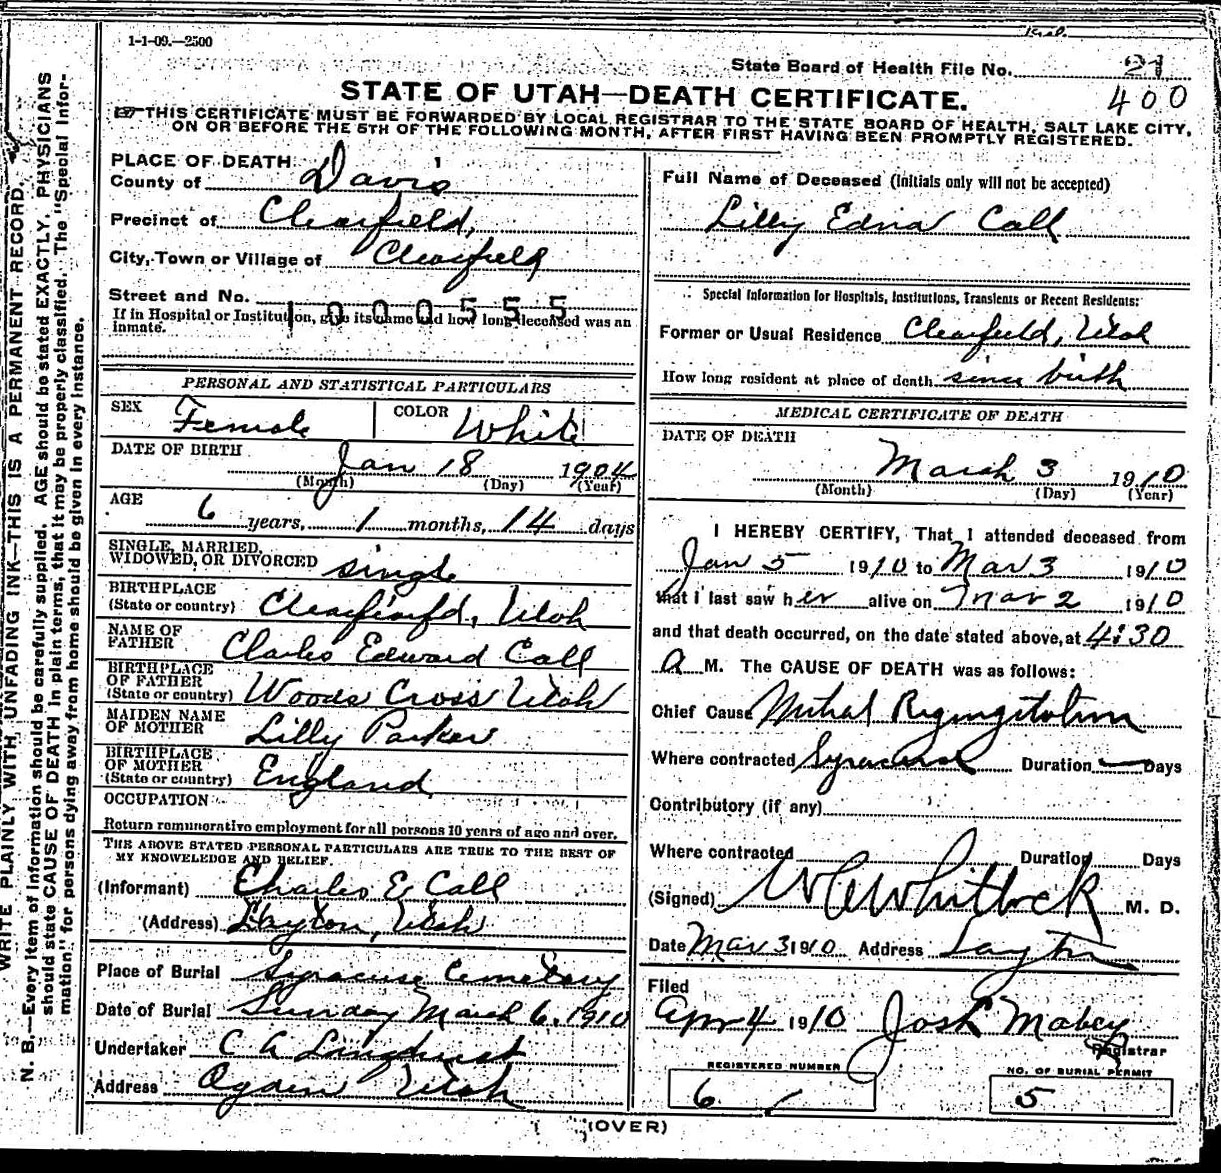 1-1-09.—2500
State Board of Health File No. 21
400
STATE OF UTAH—DEATH CERTIFICATE.
THIS CERTIFICATE MUST BE FORWARDED BY LOCAL REGISTRAR TO THE STATE BOARD OF HEALTH, SALT LAKE CITY,
ON OR BEFORE THE 5TH OF THE FOLLOWING MONTH, AFTER FIRST HAVING BEEN PROMPTLY REGISTERED.
N. B.—Every item of information should be carefully supplied. AGE should be stated EXACTLY. PHYSICIANS
should state CAUSE OF DEATH in plain terms, that it may be properly classified. The "Special Infor-
mation" for persons dying away from home should be given in every instance.
WRITE PLAINLY WITH UNFADING INK—THIS IS A PERMANENT RECORD.
PLACE OF DEATH
County of Davis
Precinct of Clearfield,
City, Town or Village of Clearfield
Street and No.
1000555
If in Hospital or Institution, give its name and how long deceased was an
inmate.
PERSONAL AND STATISTICAL PARTICULARS
SEX Female COLOR White
DATE OF BIRTH Jan 18 1904
(Month) (Day) (Year)
AGE 6 years, 1 months, 14 days
SINGLE, MARRIED,
WIDOWED, OR DIVORCED single
BIRTHPLACE
(State or country) Clearfield, Utah
NAME OF
FATHER Charles Edward Call
BIRTHPLACE
OF FATHER
(State or country) Woods Cross Utah
MAIDEN NAME
OF MOTHER Lilly Parker
BIRTHPLACE
OF MOTHER
(State or country) England
OCCUPATION
Return remunerative employment for all persons 10 years of age and over.
THE ABOVE STATED PERSONAL PARTICULARS ARE TRUE TO THE BEST OF
MY KNOWLEDGE AND BELIEF.
(Informant) Charles E Call
(Address) Layton, Utah
Place of Burial Syracuse Cemetery
Date of Burial Sunday March 6, 1910
Undertaker C A
Address Ogden Utah
Full Name of Deceased (Initials only will not be accepted)
Lilly Edna Call
Special Information for Hospitals, Institutions, Transients or Recent Residents:
Former or Usual Residence Clearfield, Utah
How long resident at place of death since birth
MEDICAL CERTIFICATE OF DEATH
DATE OF DEATH
March 3 1910
(Month) (Day) (Year)
I HEREBY CERTIFY, That I attended deceased from
Jan 5 1910 to Mar 3 1910
that I last saw her alive on Mar 2 1910
and that death occurred, on the date stated above, at 4:30
A M. The CAUSE OF DEATH was as follows:
Chief Cause Mitral
Where contracted Syracuse Duration — Days
Contributory (if any)
Where contracted Duration Days
(Signed) Whitlock M. D.
Date Mar 3 1910 Address Layton
Filed
Apr 4 1910 Josh Mabey
Registrar
REGISTERED NUMBER
6
NO. OF BURIAL PERMIT
5
(OVER)